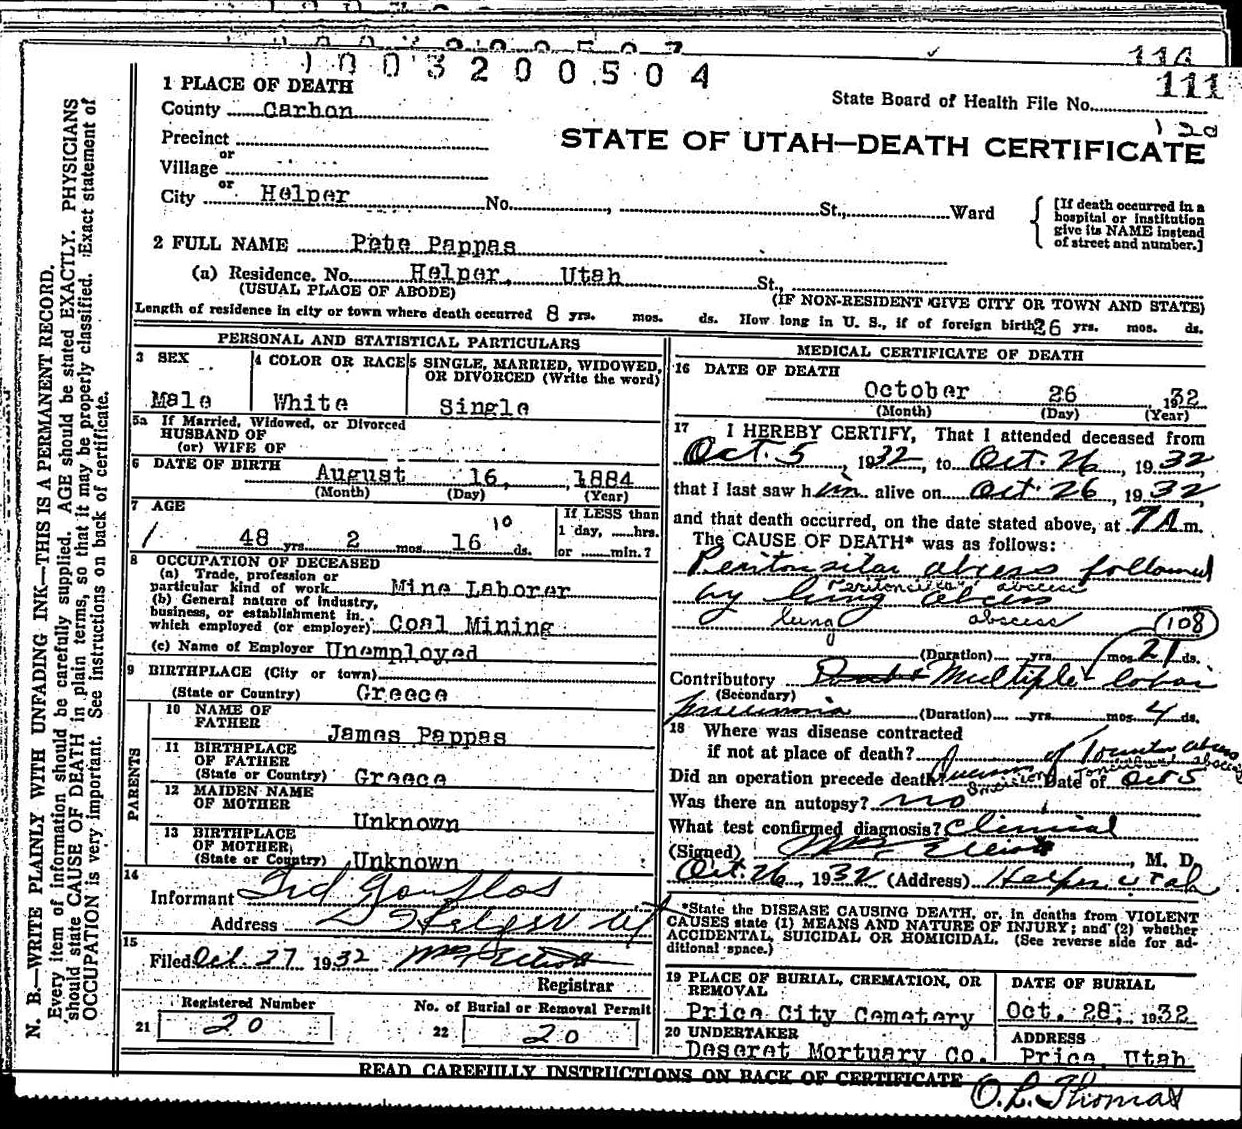 1003200504
114
111
120
1 PLACE OF DEATH
County Carbon
State Board of Health File No.
Precinct
or
Village
or
City Helper No. , St., Ward
STATE OF UTAH—DEATH CERTIFICATE
[If death occurred in a hospital or institution give its NAME instead of street and number.]
2 FULL NAME Pete Pappas
(a) Residence. No. Helper, Utah St.,
(USUAL PLACE OF ABODE) (IF NON-RESIDENT GIVE CITY OR TOWN AND STATE)
Length of residence in city or town where death occurred 8 yrs. mos. ds. How long in U. S., if of foreign birth 26 yrs. mos. ds.
PERSONAL AND STATISTICAL PARTICULARS
3 SEX
Male
4 COLOR OR RACE
White
5 SINGLE, MARRIED, WIDOWED, OR DIVORCED (Write the word)
Single
5a If Married, Widowed, or Divorced
HUSBAND OF
(or) WIFE OF
6 DATE OF BIRTH August 16, 1884
(Month) (Day) (Year)
7 AGE
48 yrs. 2 mos. 16 10 ds.
If LESS than
1 day, hrs.
or min.?
8 OCCUPATION OF DECEASED
(a) Trade, profession or
particular kind of work Mine Laborer
(b) General nature of industry,
business, or establishment in
which employed (or employer) Coal Mining
(c) Name of Employer Unemployed
9 BIRTHPLACE (City or town)
(State or Country) Greece
PARENTS
10 NAME OF
FATHER James Pappas
11 BIRTHPLACE
OF FATHER
(State or Country) Greece
12 MAIDEN NAME
OF MOTHER
Unknown
13 BIRTHPLACE
OF MOTHER
(State or Country) Unknown
14
Informant
Address Helper Ut
15
Filed Oct. 27 1932
Registrar
Registered Number
21 20
No. of Burial or Removal Permit
22 20
MEDICAL CERTIFICATE OF DEATH
16 DATE OF DEATH
October 26 1932
(Month) (Day) (Year)
17 I HEREBY CERTIFY, That I attended deceased from
Oct. 5, 1932, to Oct. 26, 1932,
that I last saw h im alive on Oct. 26, 1932
and that death occurred, on the date stated above, at 7 A m.
The CAUSE OF DEATH* was as follows:
Peritonsilar abcess followed
Peritonsilar abscess
by lung abcess
lung abscess 108
(Duration) yrs. mos. 21 ds.
Contributory Multiple lobar
(Secondary)
pneumonia (Duration) yrs. mos. 4 ds.
18 Where was disease contracted
if not at place of death?
Did an operation precede death? Date of Oct 5
Was there an autopsy? no
What test confirmed diagnosis? Clinical
(Signed) Elliott, M. D.
Oct. 26, 1932 (Address) Helper Utah
*State the DISEASE CAUSING DEATH, or, in deaths from VIOLENT
CAUSES state (1) MEANS AND NATURE OF INJURY; and (2) whether
ACCIDENTAL, SUICIDAL OR HOMICIDAL. (See reverse side for ad-
ditional space.)
19 PLACE OF BURIAL, CREMATION, OR
REMOVAL
Price City Cemetery
DATE OF BURIAL
Oct. 28, 1932
20 UNDERTAKER
Deseret Mortuary Co.
ADDRESS
Price, Utah
READ CAREFULLY INSTRUCTIONS ON BACK OF CERTIFICATE
O. L. Thomas
N. B.—WRITE PLAINLY WITH UNFADING INK—THIS IS A PERMANENT RECORD.
Every item of information should be carefully supplied. AGE should be stated EXACTLY. PHYSICIANS
should state CAUSE OF DEATH in plain terms, so that it may be properly classified. Exact statement of
OCCUPATION is very important. See instructions on back of certificate.